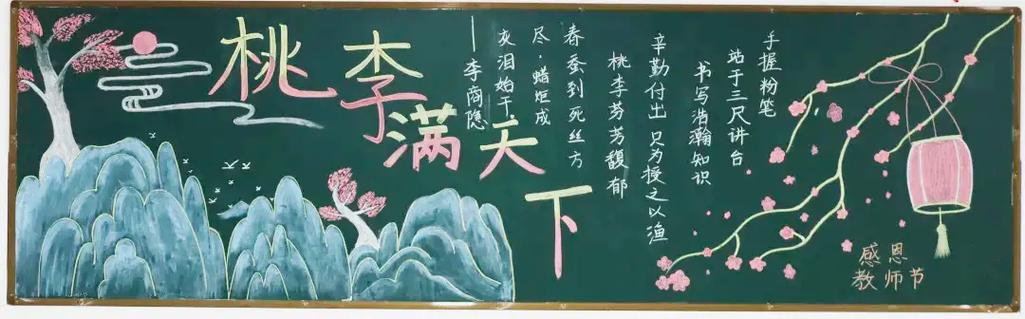 桃李满天下
手握粉笔
站于三尺讲台
书写浩瀚知识
辛勤付出 只为授之以渔
桃李芬芳馥郁
春蚕到死丝方
尽，蜡炬成
灰泪始干
——李商隐
感恩
教师节